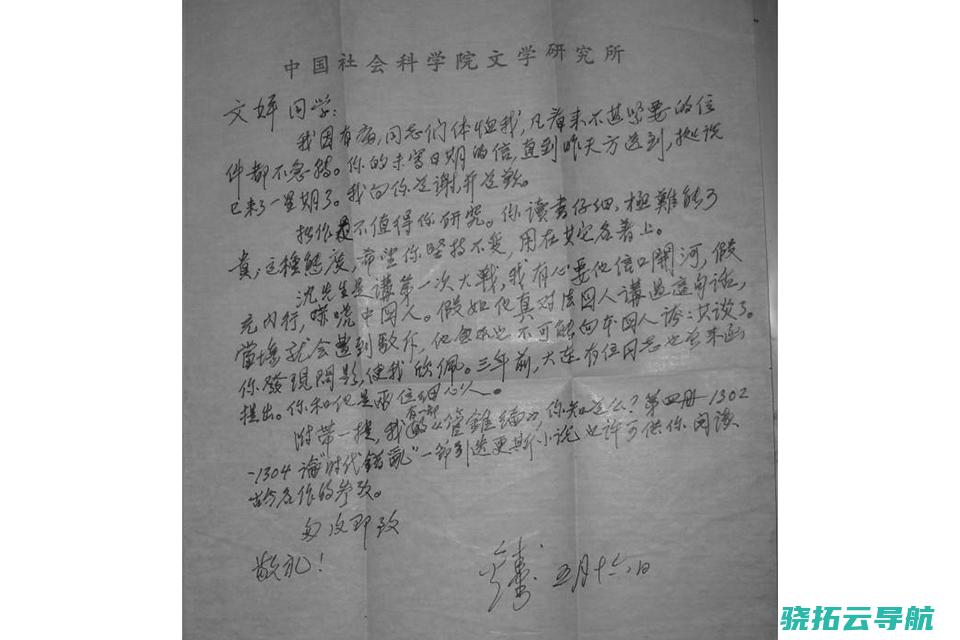 中国社会科学院文学研究所
文 同学：
我因有病，同志们体恤我，凡看来不甚紧要的信
件都不急转。你的未写日期的信，直到昨天方送到，据说
已来了一星期了。我向你道谢，并道歉。
拙作 不值得你研究。你讀書仔细，極難能可
貴，这種態度，希望你坚持不变，用在其它名著上。
沈先生是講第一次大戦，我有心要他信口開河，假
充内行，嚇唬中国人。假如他真对法国人講過這句话，
當場就会遭到駁斥，他 也不可能向本国人 談了。
你發現問題，使我欣佩。三年前，大连有位同志也曾来函
提出。你和他是兩位细心人。
附带一提，我有一部《管錐编》，你知道么？第四册1302
-1304論“时代錯亂”一節到迭更斯小说，也许可供你阅读
古今名作的参改。
匆复即致
敬礼！
五月十六日
骁拓云导航